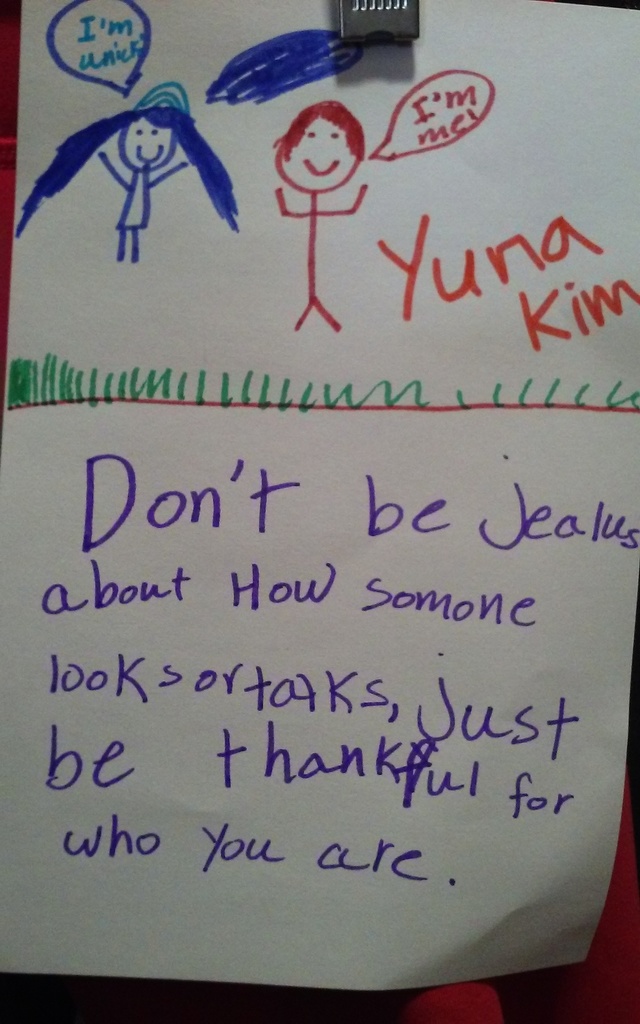 I'm
unick!
I'm
me!
Yuna
Kim
Don't be jealus
about How somone
looks or talks, just
be thankful for
who you are.